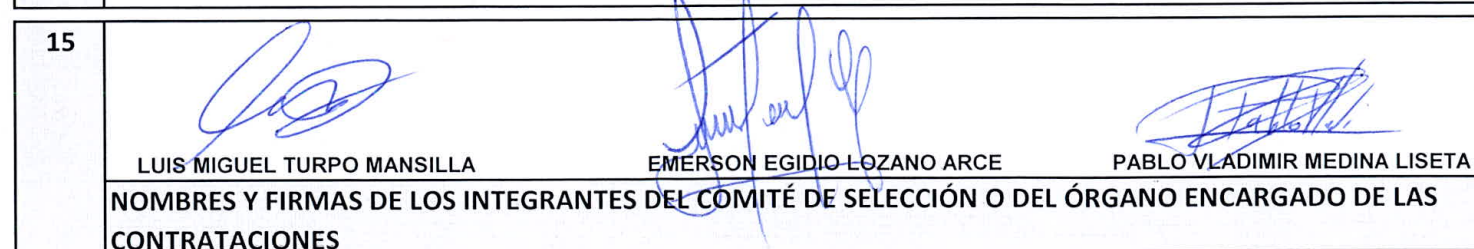 15
LUIS MIGUEL TURPO MANSILLA
EMERSON EGIDIO LOZANO ARCE
PABLO VLADIMIR MEDINA LISETA
NOMBRES Y FIRMAS DE LOS INTEGRANTES DEL COMITÉ DE SELECCIÓN O DEL ÓRGANO ENCARGADO DE LAS
CONTRATACIONES